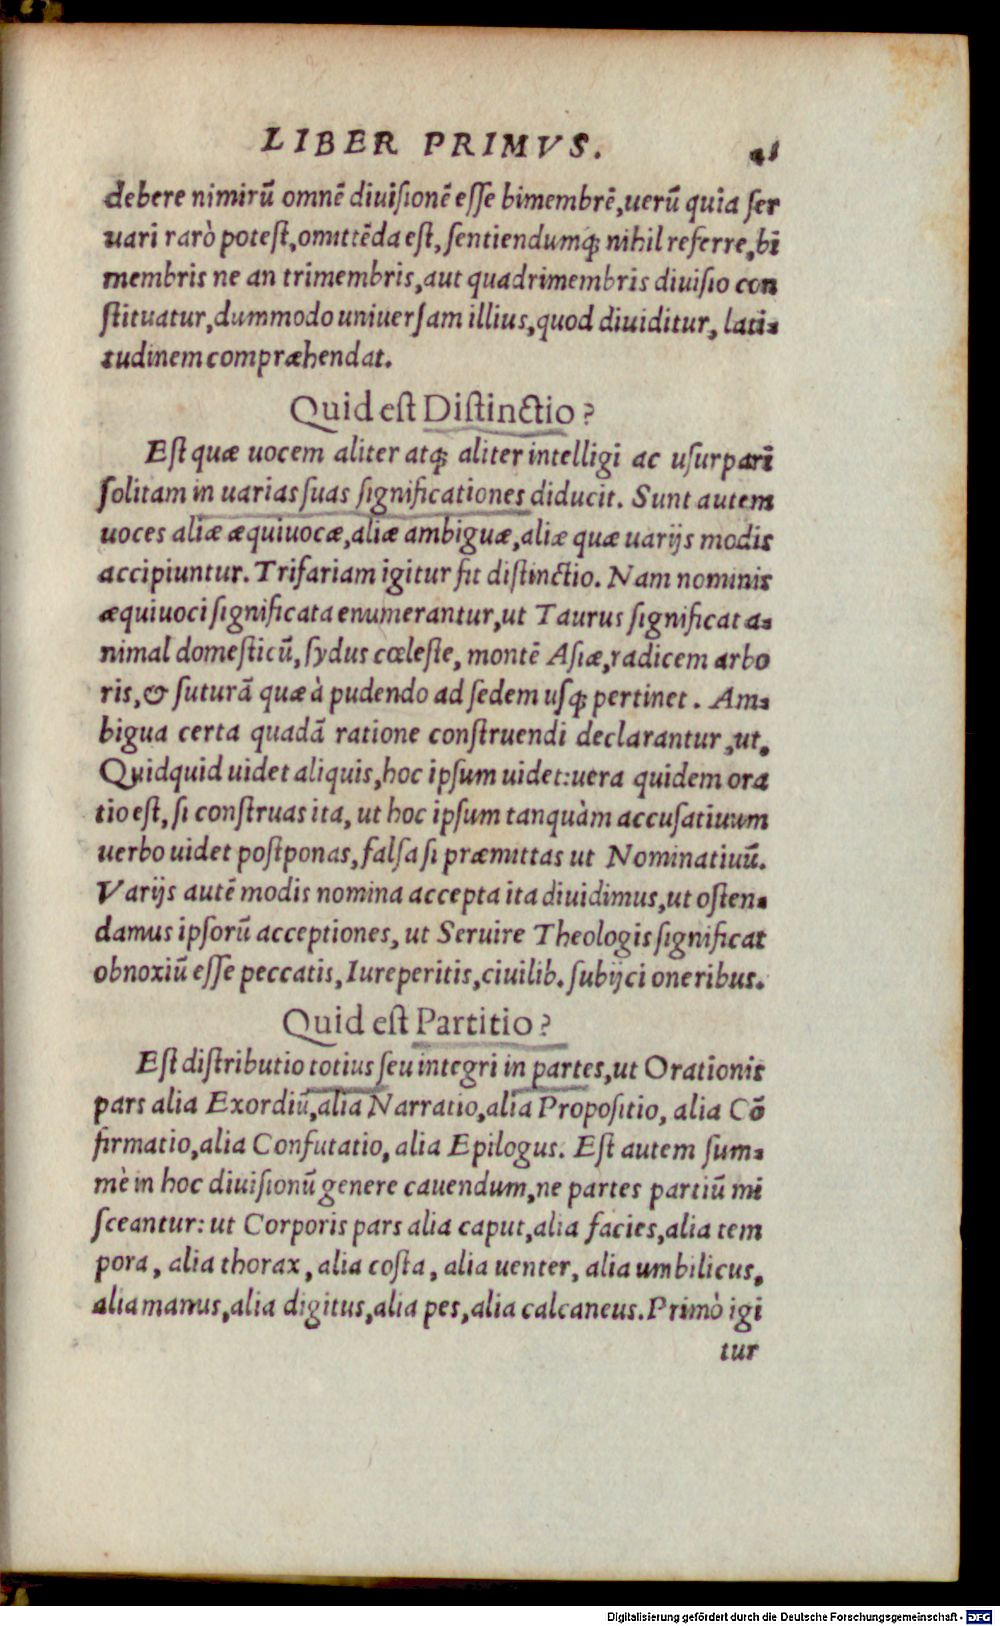 LIBER PRIMVS.
debere nimirū omnē diuisionē esse bimembrē, uerū quia ser
uari rarò potest, omittēda est, sentiendumq; nihil referre, bi
membris ne an trimembris, aut quadrimembris diuisio con
stituatur, dummodo uniuersam illius, quod diuiditur, lati-
tudinem compræhendat.
Quid est Distinctio?
Est quæ uocem aliter atq; aliter intelligi ac usurpari
solitam in uarias suas significationes diducit. Sunt autem
uoces aliæ æquiuocæ, aliæ ambiguæ, aliæ quæ uarijs modis
accipiuntur. Trifariam igitur fit distinctio. Nam nominis
æquiuoci significata enumerantur, ut Taurus significat a-
nimal domesticū, sydus cœleste, montē Asiæ, radicem arbo
ris, & suturā quæ à pudendo ad sedem usq; pertinet. Am-
bigua certa quadā ratione construendi declarantur, ut,
Quidquid uidet aliquis, hoc ipsum uidet: uera quidem ora
tio est, si construas ita, ut hoc ipsum tanquàm accusatiuum
uerbo uidet postponas, falsa si præmittas ut Nominatiuū.
Varijs autē modis nomina accepta ita diuidimus, ut osten-
damus ipsorū acceptiones, ut Seruire Theologis significat
obnoxiū esse peccatis, Iureperitis, ciuilib. subijci oneribus.
Quid est Partitio?
Est distributio totius seu integri in partes, ut Orationis
pars alia Exordiū, alia Narratio, alia Propositio, alia Cō
firmatio, alia Confutatio, alia Epilogus. Est autem sum-
mè in hoc diuisionū genere cauendum, ne partes partiū mi
sceantur: ut Corporis pars alia caput, alia facies, alia tem
pora, alia thorax, alia costa, alia uenter, alia umbilicus,
alia manus, alia digitus, alia pes, alia calcaneus. Primò igi
tur
Digitalisierung gefördert durch die Deutsche Forschungsgemeinschaft - DFG